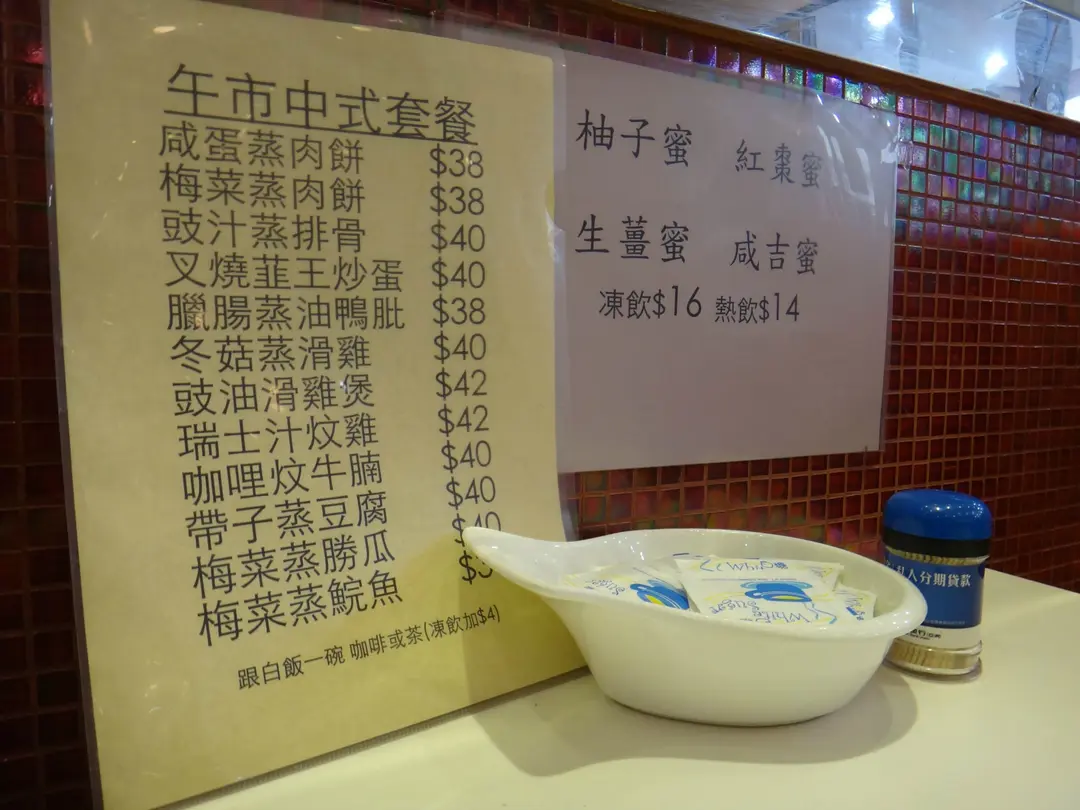 午市中式套餐
咸蛋蒸肉餅 $38
梅菜蒸肉餅 $38
豉汁蒸排骨 $40
叉燒韮王炒蛋 $40
臘腸蒸油鴨肶 $38
冬菇蒸滑雞 $40
豉油滑雞煲 $42
瑞士汁炆雞 $42
咖哩炆牛腩 $40
帶子蒸豆腐 $40
梅菜蒸勝瓜 $40
梅菜蒸鯇魚
跟白飯一碗 咖啡或茶(凍飲加$4)
柚子蜜 紅棗蜜
生薑蜜 咸吉蜜
凍飲$16 熱飲$14
White
Sugar
人分期貸款